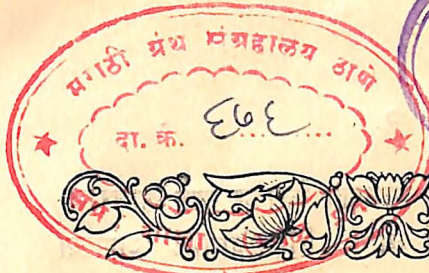 मराठी ग्रंथ संग्रहालय ठाणे
दा. क्रं. ६७६